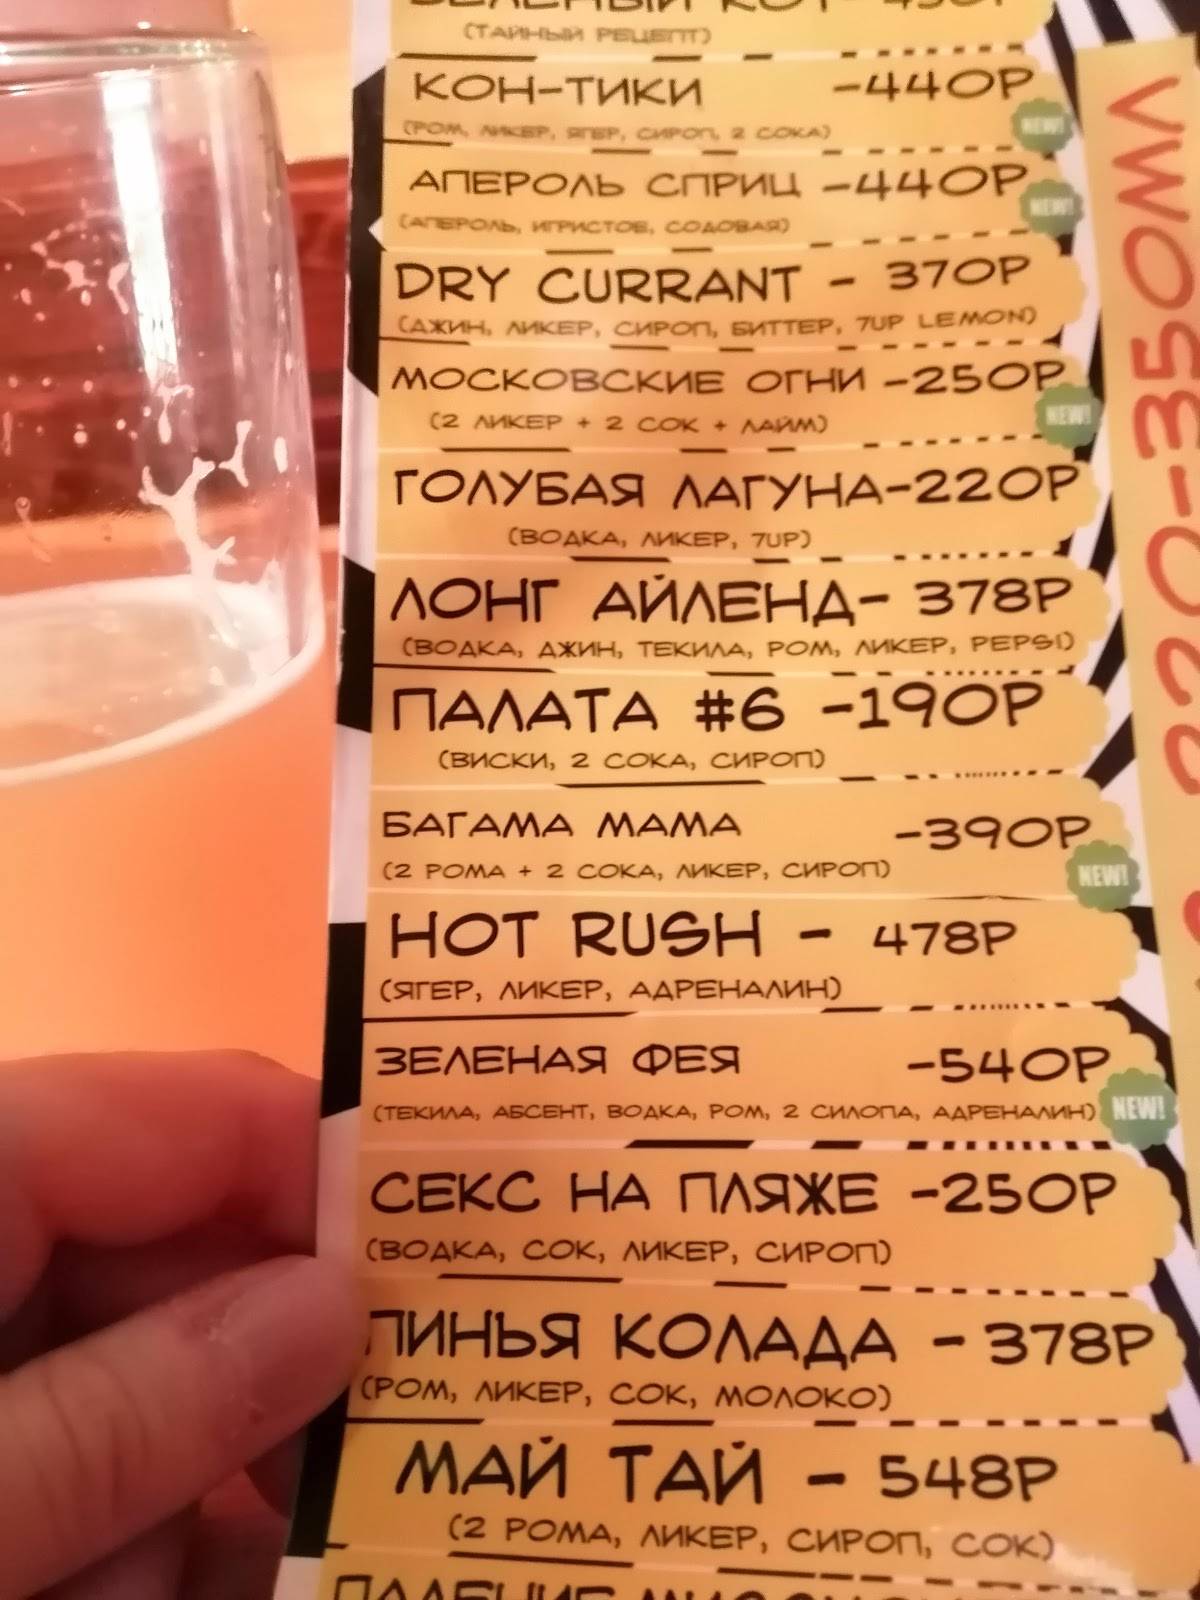 ЗЕЛЕНЫЙ КОТ- 450Р
(ТАЙНЫЙ РЕЦЕПТ)
КОН-ТИКИ -440Р
(РОМ, ЛИКЕР, ЯГЕР, СИРОП, 2 СОКА)
NEW!
АПЕРОЛЬ СПРИЦ -440Р
(АПЕРОЛЬ, ИГРИСТОЕ, СОДОВАЯ)
NEW!
DRY CURRANT - 370Р
(ДЖИН, ЛИКЕР, СИРОП, БИТТЕР, 7UP LEMON)
МОСКОВСКИЕ ОГНИ -250Р
(2 ЛИКЕР + 2 СОК + ЛАЙМ)
NEW!
ГОЛУБАЯ ЛАГУНА-220Р
(ВОДКА, ЛИКЕР, 7UP)
ЛОНГ АЙЛЕНД- 378Р
(ВОДКА, ДЖИН, ТЕКИЛА, РОМ, ЛИКЕР, PEPSI)
ПАЛАТА #6 -190Р
(ВИСКИ, 2 СОКА, СИРОП)
БАГАМА МАМА -390Р
(2 РОМА + 2 СОКА, ЛИКЕР, СИРОП)
NEW!
HOT RUSH - 478Р
(ЯГЕР, ЛИКЕР, АДРЕНАЛИН)
ЗЕЛЕНАЯ ФЕЯ -540Р
(ТЕКИЛА, АБСЕНТ, ВОДКА, РОМ, 2 СИЛОПА, АДРЕНАЛИН)
NEW!
СЕКС НА ПЛЯЖЕ -250Р
(ВОДКА, СОК, ЛИКЕР, СИРОП)
ПИНЬЯ КОЛАДА - 378Р
(РОМ, ЛИКЕР, СОК, МОЛОКО)
МАЙ ТАЙ - 548Р
(2 РОМА, ЛИКЕР, СИРОП, СОК)
ПАДЕНИЕ
220-350МЛ